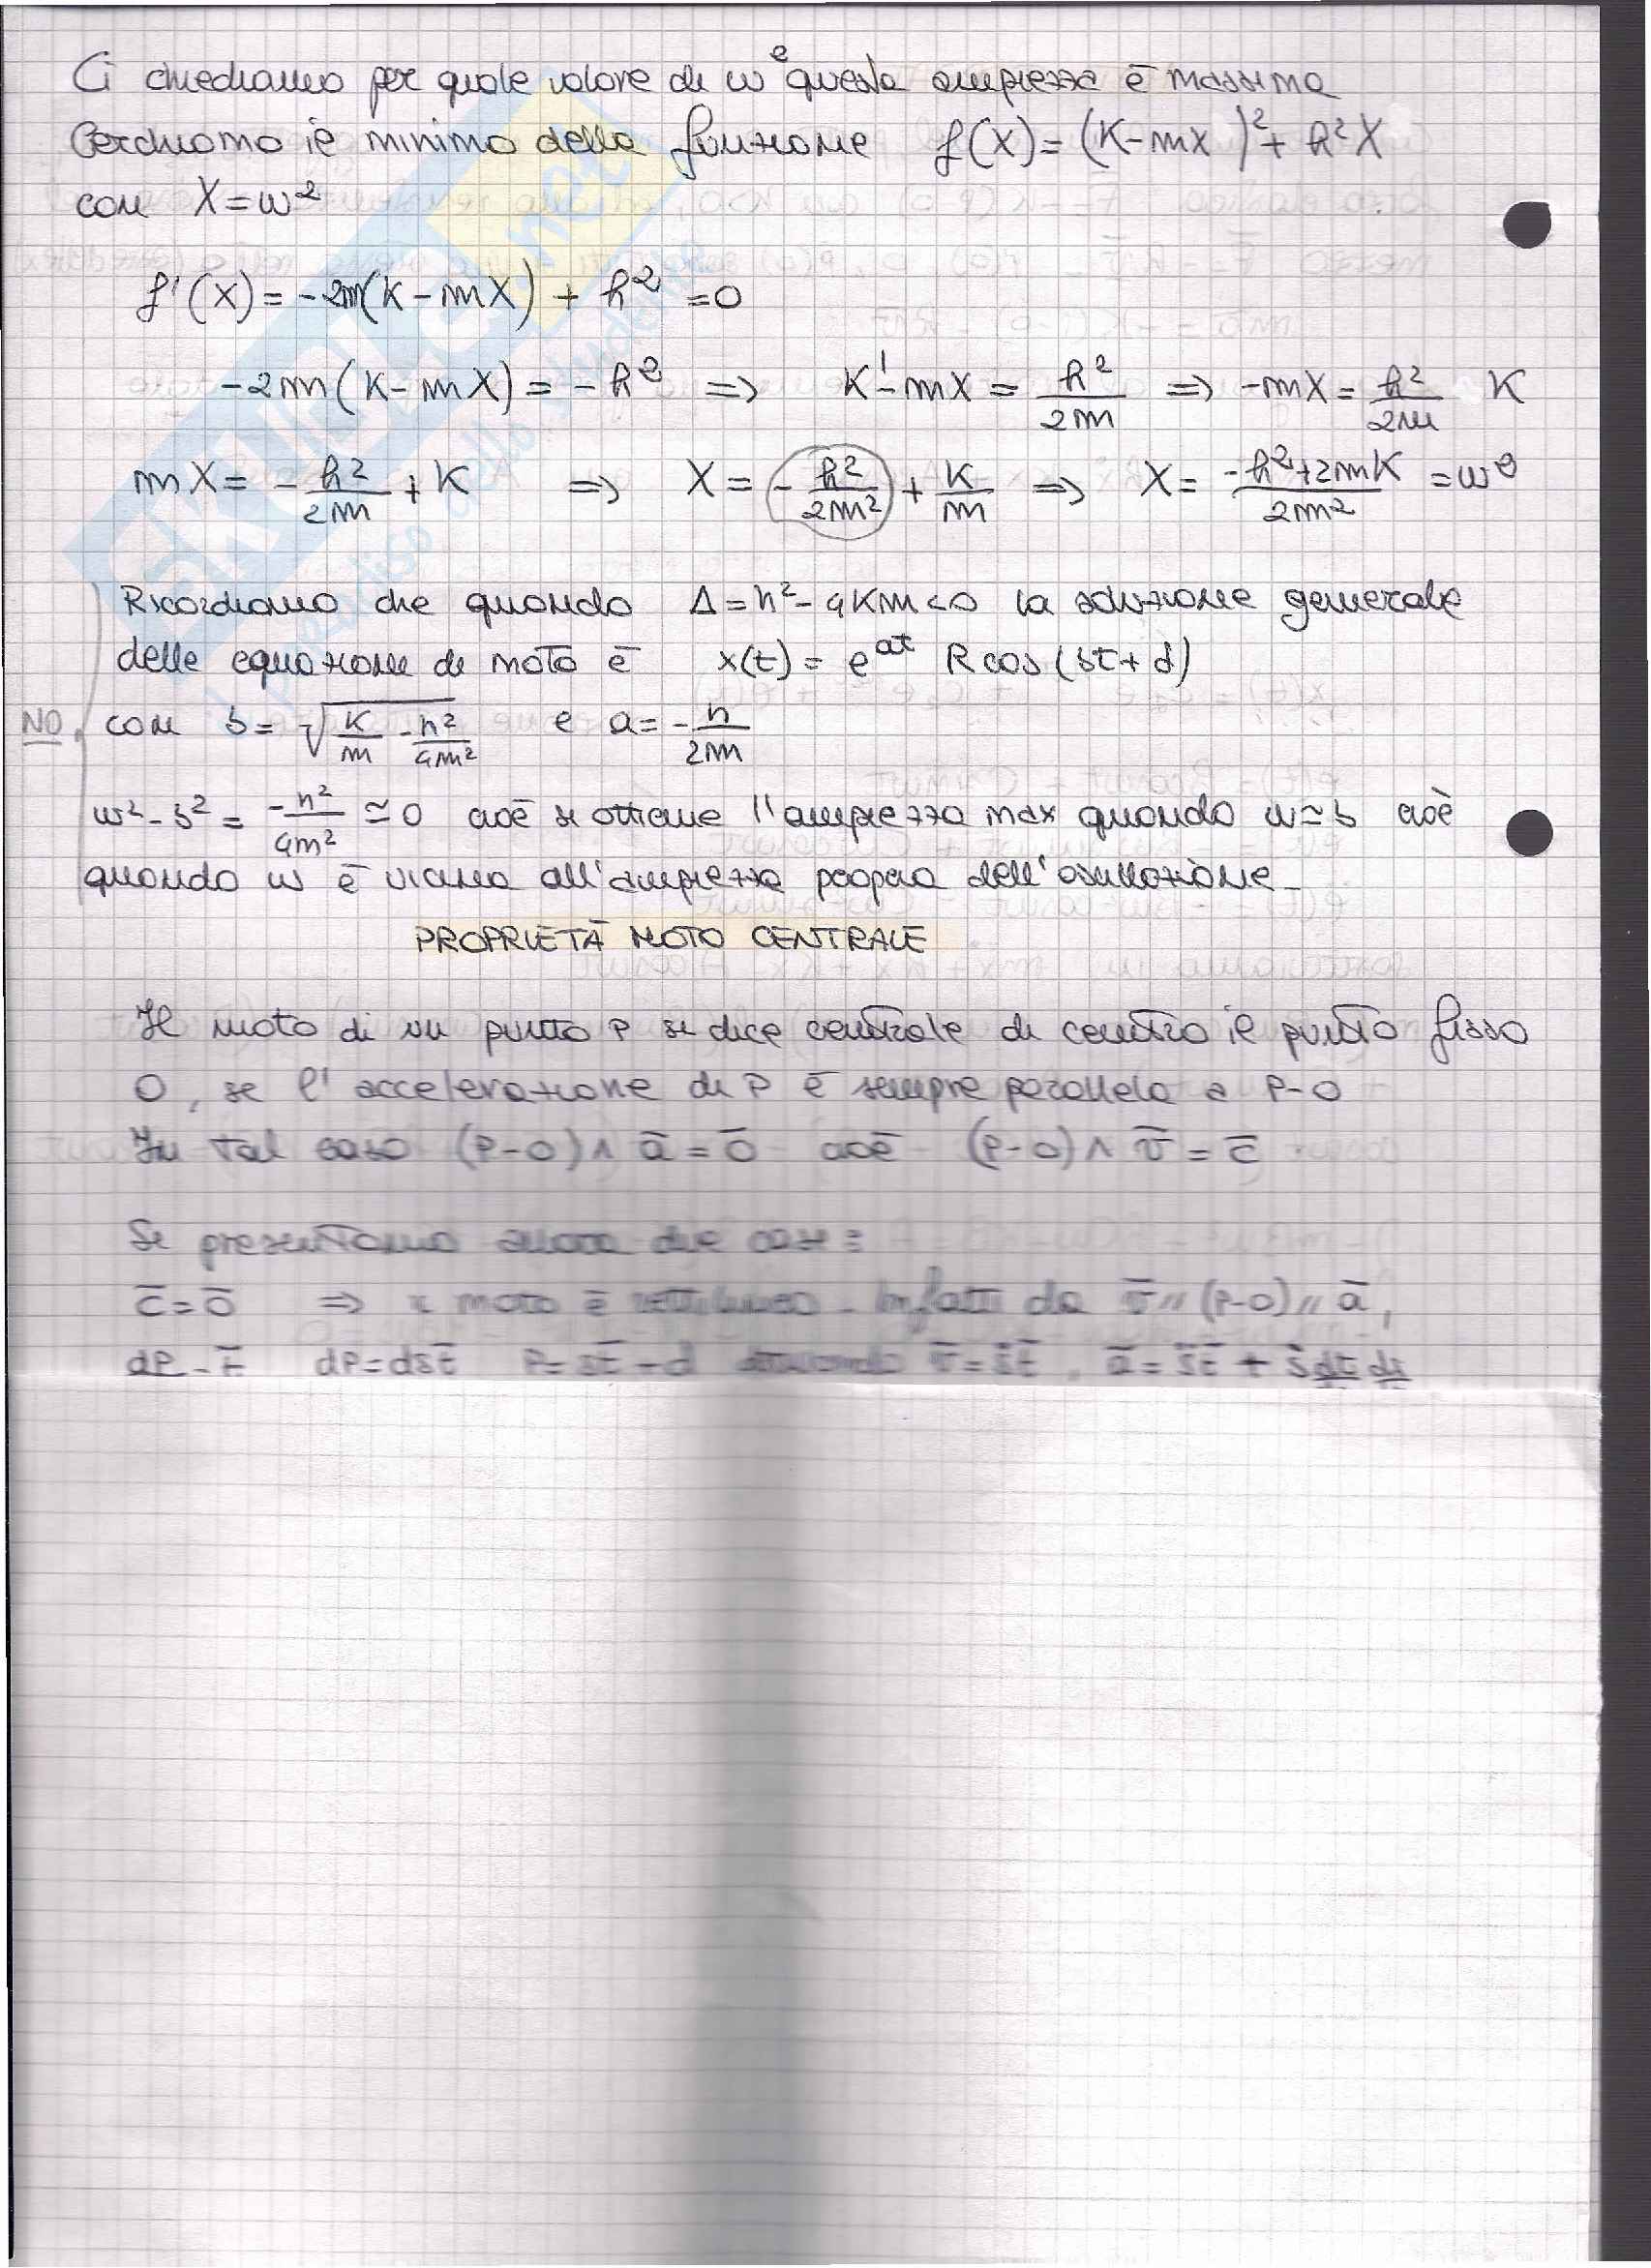 Ci chiediamo per quale valore di ω² questa ampiezza è massima
Cerchiamo il minimo della funzione f(X) = (K-mX)² + h²X
con X = ω²
f'(X) = -2m(K-mX) + h² = 0
-2m(K-mX) = -h² => K-mX = h²/2m => -mX = h²/2m K
mX = -h²/2m + K => X = -h²/2m² + K/m => X = -h²+2mK/2m² = ω²
Ricordiamo che quando Δ = h² - 4Km < 0 la soluzione generale
delle equazione di moto è x(t) = e^at R cos(bt + d)
NO con b = √(K/m - h²/4m²) e a = -h/2m
ω² - b² = -h²/4m² ≃ 0 cioè si ottiene l'ampiezza max quando ω ≃ b cioè
quando ω è vicina all'ampiezza propria dell'oscillazione_
PROPRIETÀ MOTO CENTRALE
Il moto di un punto P si dice centrale di centro il punto fisso
O, se l'accelerazione di P è sempre parallela a P-O
In tal caso (P-O) ∧ a̅ = 0̅ cioè (P-O) ∧ v̅ = c̅
Si presentano allora due casi:
c̅ = 0̅ => il moto è rettilineo_ Infatti da v̅ // (P-O) // a̅,
dP = t̅ dP = ds t̅ P = s t̅ + d v̅ = ṡ t̅, a̅ = s̈ t̅ + ṡ dt̅ ds
SKUOLA.net
il paradiso dello studente